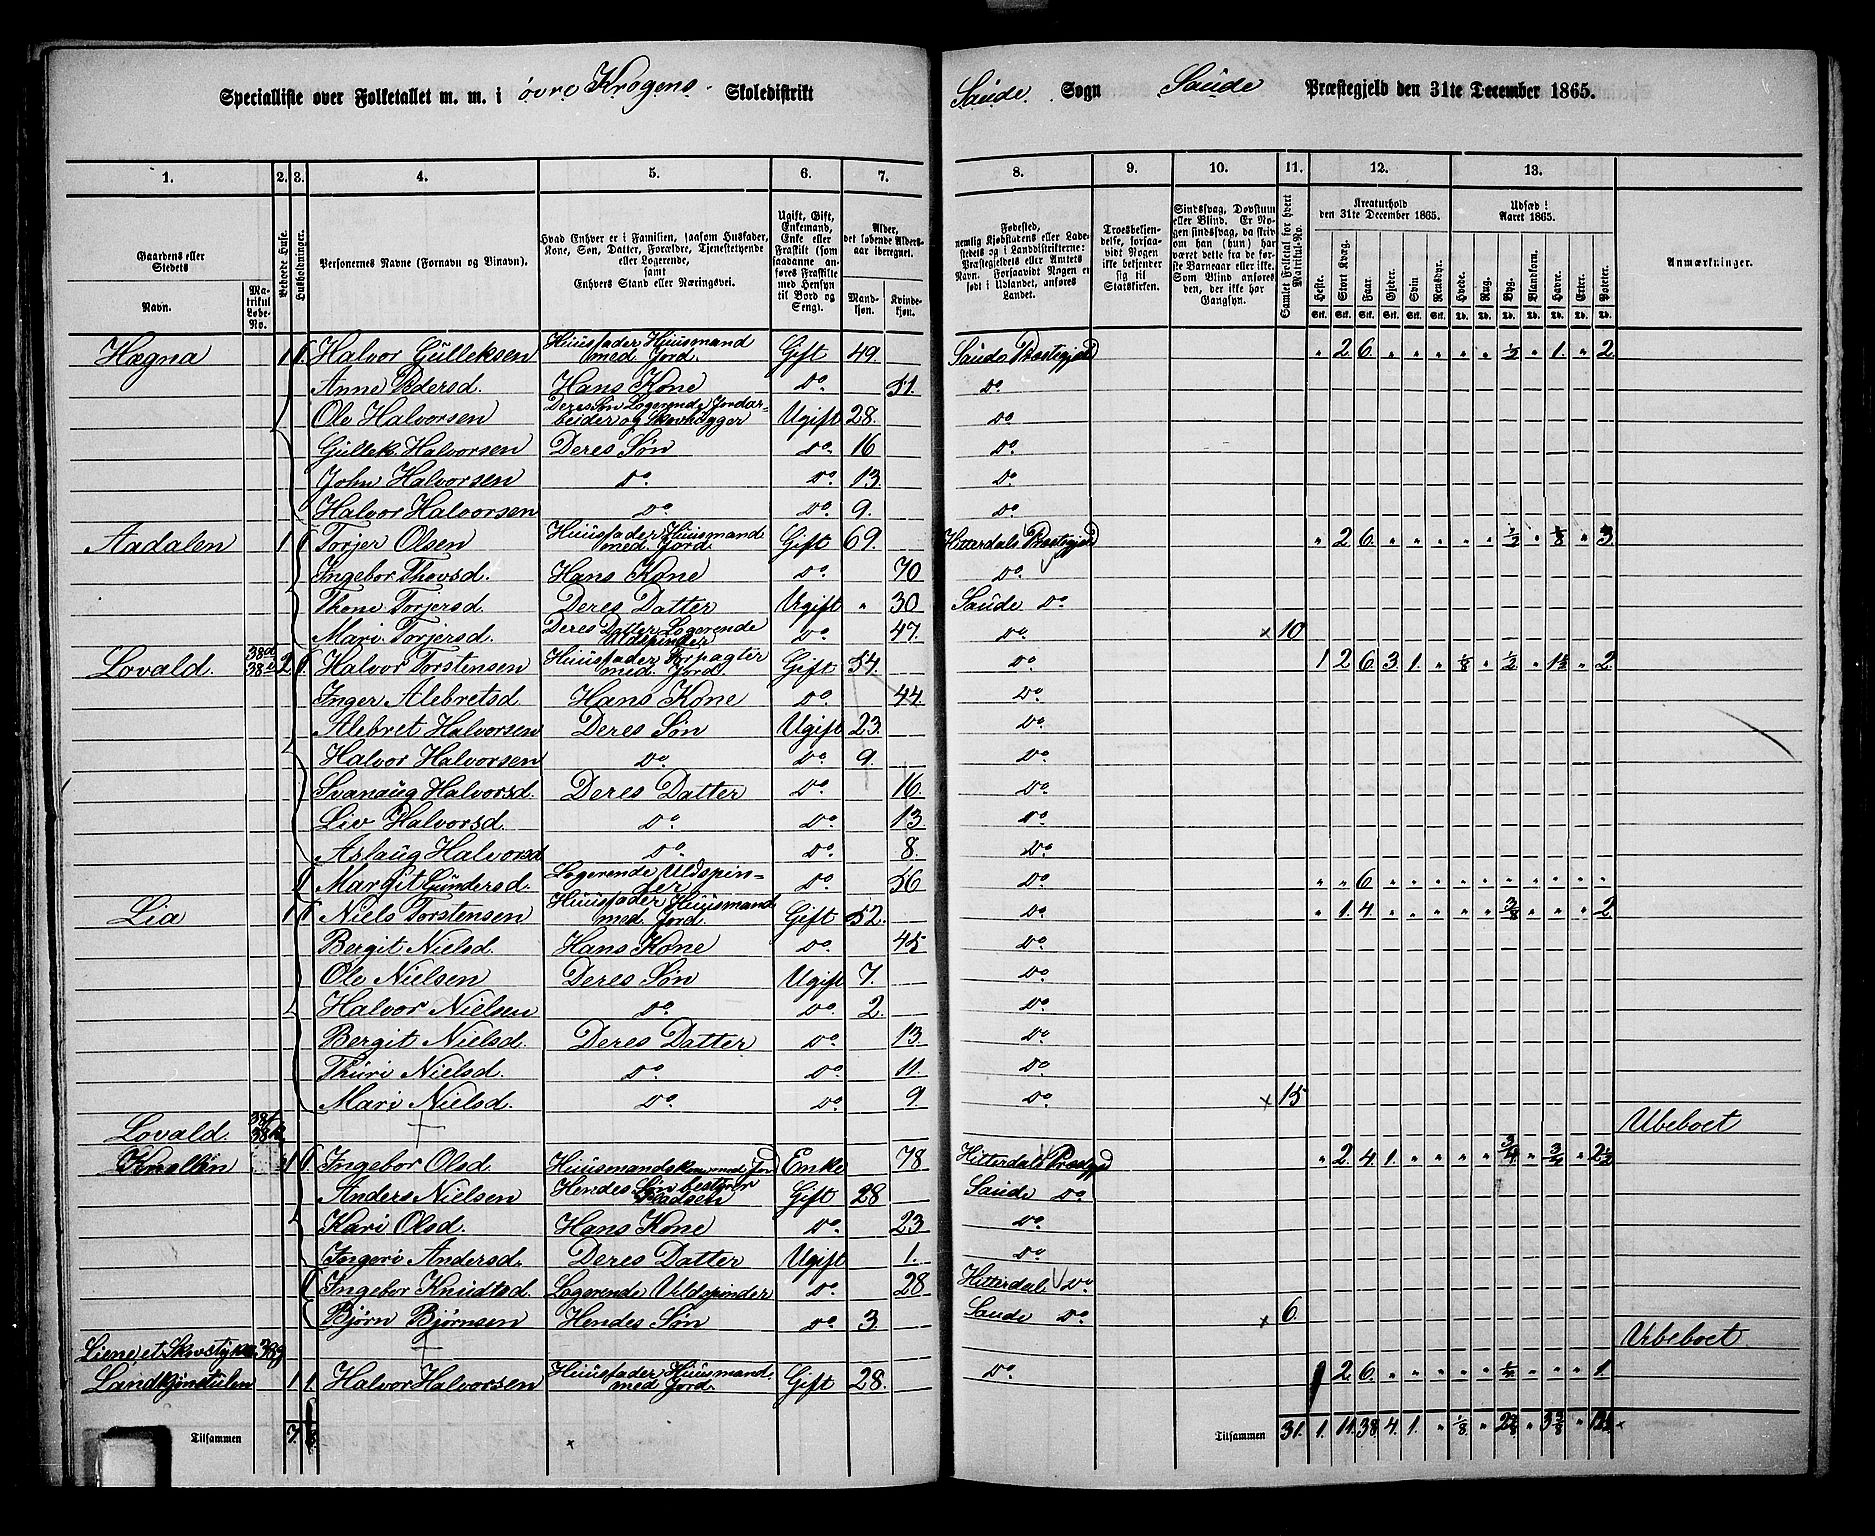 Specialliste over Folketallet m. m. i øvre Krogens Skoledistrikt Saude Sogn Saude Præstegjeld den 31te December 1865.
1. 2. 3. 4. 5. 6. 7. 8. 9. 10. 11. 12. 13.
Gaardens eller Stedets
Navn.
Matrikul Løbe-No.
Beboede Huse.
Husholdninger.
Personernes Navne (Fornavn og Tilnavn).
Hvad Enhver er i Familien, saasom Husfader, Kone, Søn, Datter, Forældre, Tjenestetyende eller Logerende, samt Enhvers Stand eller Næringsvei.
Ugift, Gift, Enkemand, Enke eller Fraskilt (som saadanne anføres Fraskilte med Hensyn til Bord og Seng).
Alder, det løbende Aldersaar iberegnet.
Mandkjøn. Kvindekjøn.
Fødested, nemlig Kjøbstadens eller Ladestedets og i Landdistrikterne: Præstegjeldets eller Amtets Navn. Forsaavidt Nogen er født i Udlandet, anføres Landet.
Troesbekjendelse, forsaavidt Nogen ikke bekjender sig til Statskirken.
Sindssvag, Døvstum eller Blind. Er Nogen sindssvag, da skriv om han (hun) har været dette fra de første Barneaar eller ikke. Som Blind anføres den, der ikke har Gangsyn.
Samlet Folketal for hvert Matrikul-No.
Kreaturhold den 31te December 1865.
Heste. Stort Kvæg. Faar. Gjeder. Svin Rensdyr.
Udsæd i Aaret 1865.
Hvede. Rug. Byg. Blandkorn. Havre. Erter. Poteter.
Anmærkninger.
Hægna 1 1 Halvor Gulleksen Huusfader Huusmand med Jord Gift 49. Saude Præstegjeld " 2 6 " " " " " ½ " 1. " 2
Anne Pedersd. Hans Kone do 51. do
Ole Halvorsen Deres Søn Logerende Jordarbeider og Skovhugger Ugift 28. do
Gullek Halvorsen Deres Søn do 16 do
John Halvorsen do do 13. do
Halvor Halvorsen do do 9. do
Aadalen 1 1 Torjer Olsen Huusfader Huusmand med Jord. Gift 69. Hitterdals Præstegjeld " 2 6. " " " " " ½ " 1/8 " 3.
Ingebor Thovsd. Hans Kone do 70 do
Thone Torjersd. Deres Datter Ugift " 30 Saude do
Mari Torjersd. Deres Datter Logerende Uldspinder do 47. do x 10
Lovald. 38d 2 1 Halvor Torstensen Huusfader Forpagter med Jord. Gift 54. do 1 2 6 3 1. " 1/8 " ½ " 1½ " 2.
Inger Alebretsd. Hans Kone do 44. do
Alebret Halvorsen Deres Søn Ugift 23. do
Halvor Halvorsen do do 9. do
Svanaug Halvorsd. Deres Datter do 16. do
Liv Halvorsd. do do 13. do
Aslaug Halvorsd do do 8. do
1 Margit Gundersd. Logerende Uldspinder do 56 do " " 6 " " " " " " " " " "
Lia 1 1 Niels Torstensen Huusfader Huusmand med Jord. Gift 52. do " 1. 4. " " " " " 3/8 " " " 2.
Bergit Nielsd. Hans Kone do 45 do
Ole Nielsen Deres Søn Ugift 7. do
Halvor Nielsen do do 2. do
Bergit Nielsd. Deres Datter do 13. do
Thuri Nielsd. do do 11. do
Mari Nielsd. do do 9. do x 15
Lovald. 38f Ubeboet
Knollen 1 1 Ingebor Olsd. Huusmandskone med Jord Enke 78 Hitterdals Præstgjd " 2. 4. 1. " " " " 3/4 " 3/4 " 2½
Anders Nielsen Hendes Søn bestyrer Pladsen Gift 28 Saude do
Kari Olsd. Hans Kone do 23 do
Ingeri Andersd. Deres Datter Ugift 1. do
1 Ingebor Knudtsd. Logerende Uldspinder do 28 Hitterdal do
Bjørn Bjørnsen Hendes Søn do 3 Saude do x 6.
Liene et Skovstykke 38g Ubeboet
Landkjønstulen 1 1. Halvor Halvorsen Huusfader Huusmand med Jord. Gift 28. do 2 6. " " " " " ½ " " " 1.
Tilsammen 7. 8 x Tilsammen 31. 1. 11. 38 4. 1. " 1/8 "